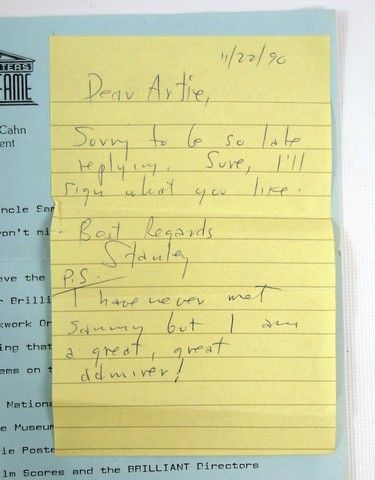 TERS'
FAME
Cahn
ent
ncle Sam
on't mi
eve the
r Brilli
kwork Or
ing that
ems on t
Nationa
e Museum
ie Poste
lm Scores and the BRILLIANT Directors
11/22/90
Dear Artie,
Sorry to be so late
replying. Sure, I'll
sign what you like.
Best Regards
Stanley
P.S.
I have never met
Sammy but I am
a great, great
admirer!